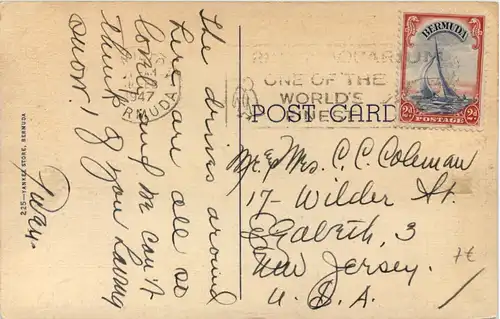 The drives around
here are all so
lovely and we can't
think of you having
snow!
Fway.
225—YANKEE STORE, BERMUDA
1947
BERMUDA
AQUARIUM
ONE OF THE
WORLD'S
FINEST
POST CARD
BERMUDA
2d 2d
POSTAGE
Mr & Mrs. C. C. Coleman
17- Wilder St.
Elizabeth, 3
New Jersey.
U. S. A.
7€